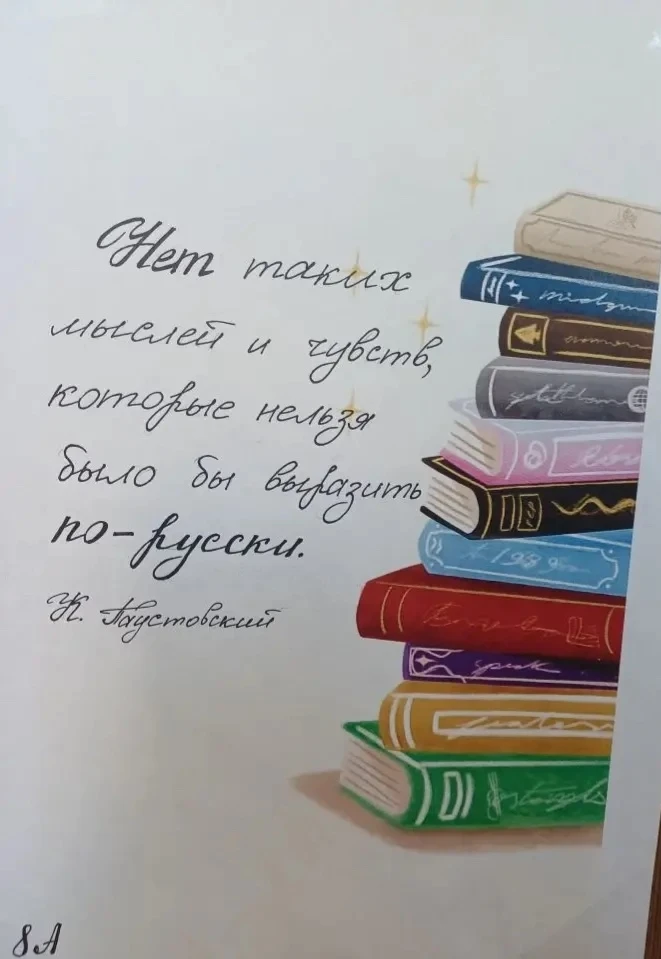 Нет таких
мыслей и чувств,
которые нельзя
было бы выразить
по-русски.
К. Паустовский
8А